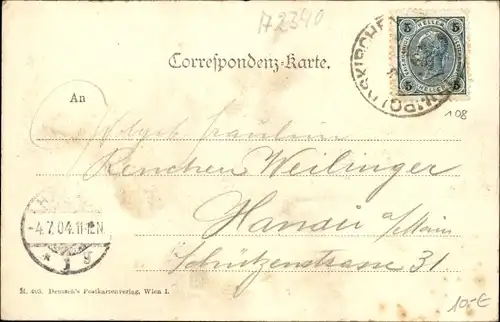 A2340
Correspondenz-Karte.
5 HELLER 5
5 HELLER 5
108
An
Fräulein
Renchen Weilinger
Hanau a/Main
Schützenstrasse 31
-4.7.04.11-12.N.
* 1 g
M. 403. Deutsch's Postkartenverlag, Wien I.
10.-€